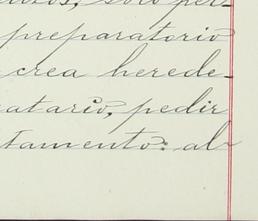 solo per-
preparatorio
crea herede-
atario, pedir
tamento: al-